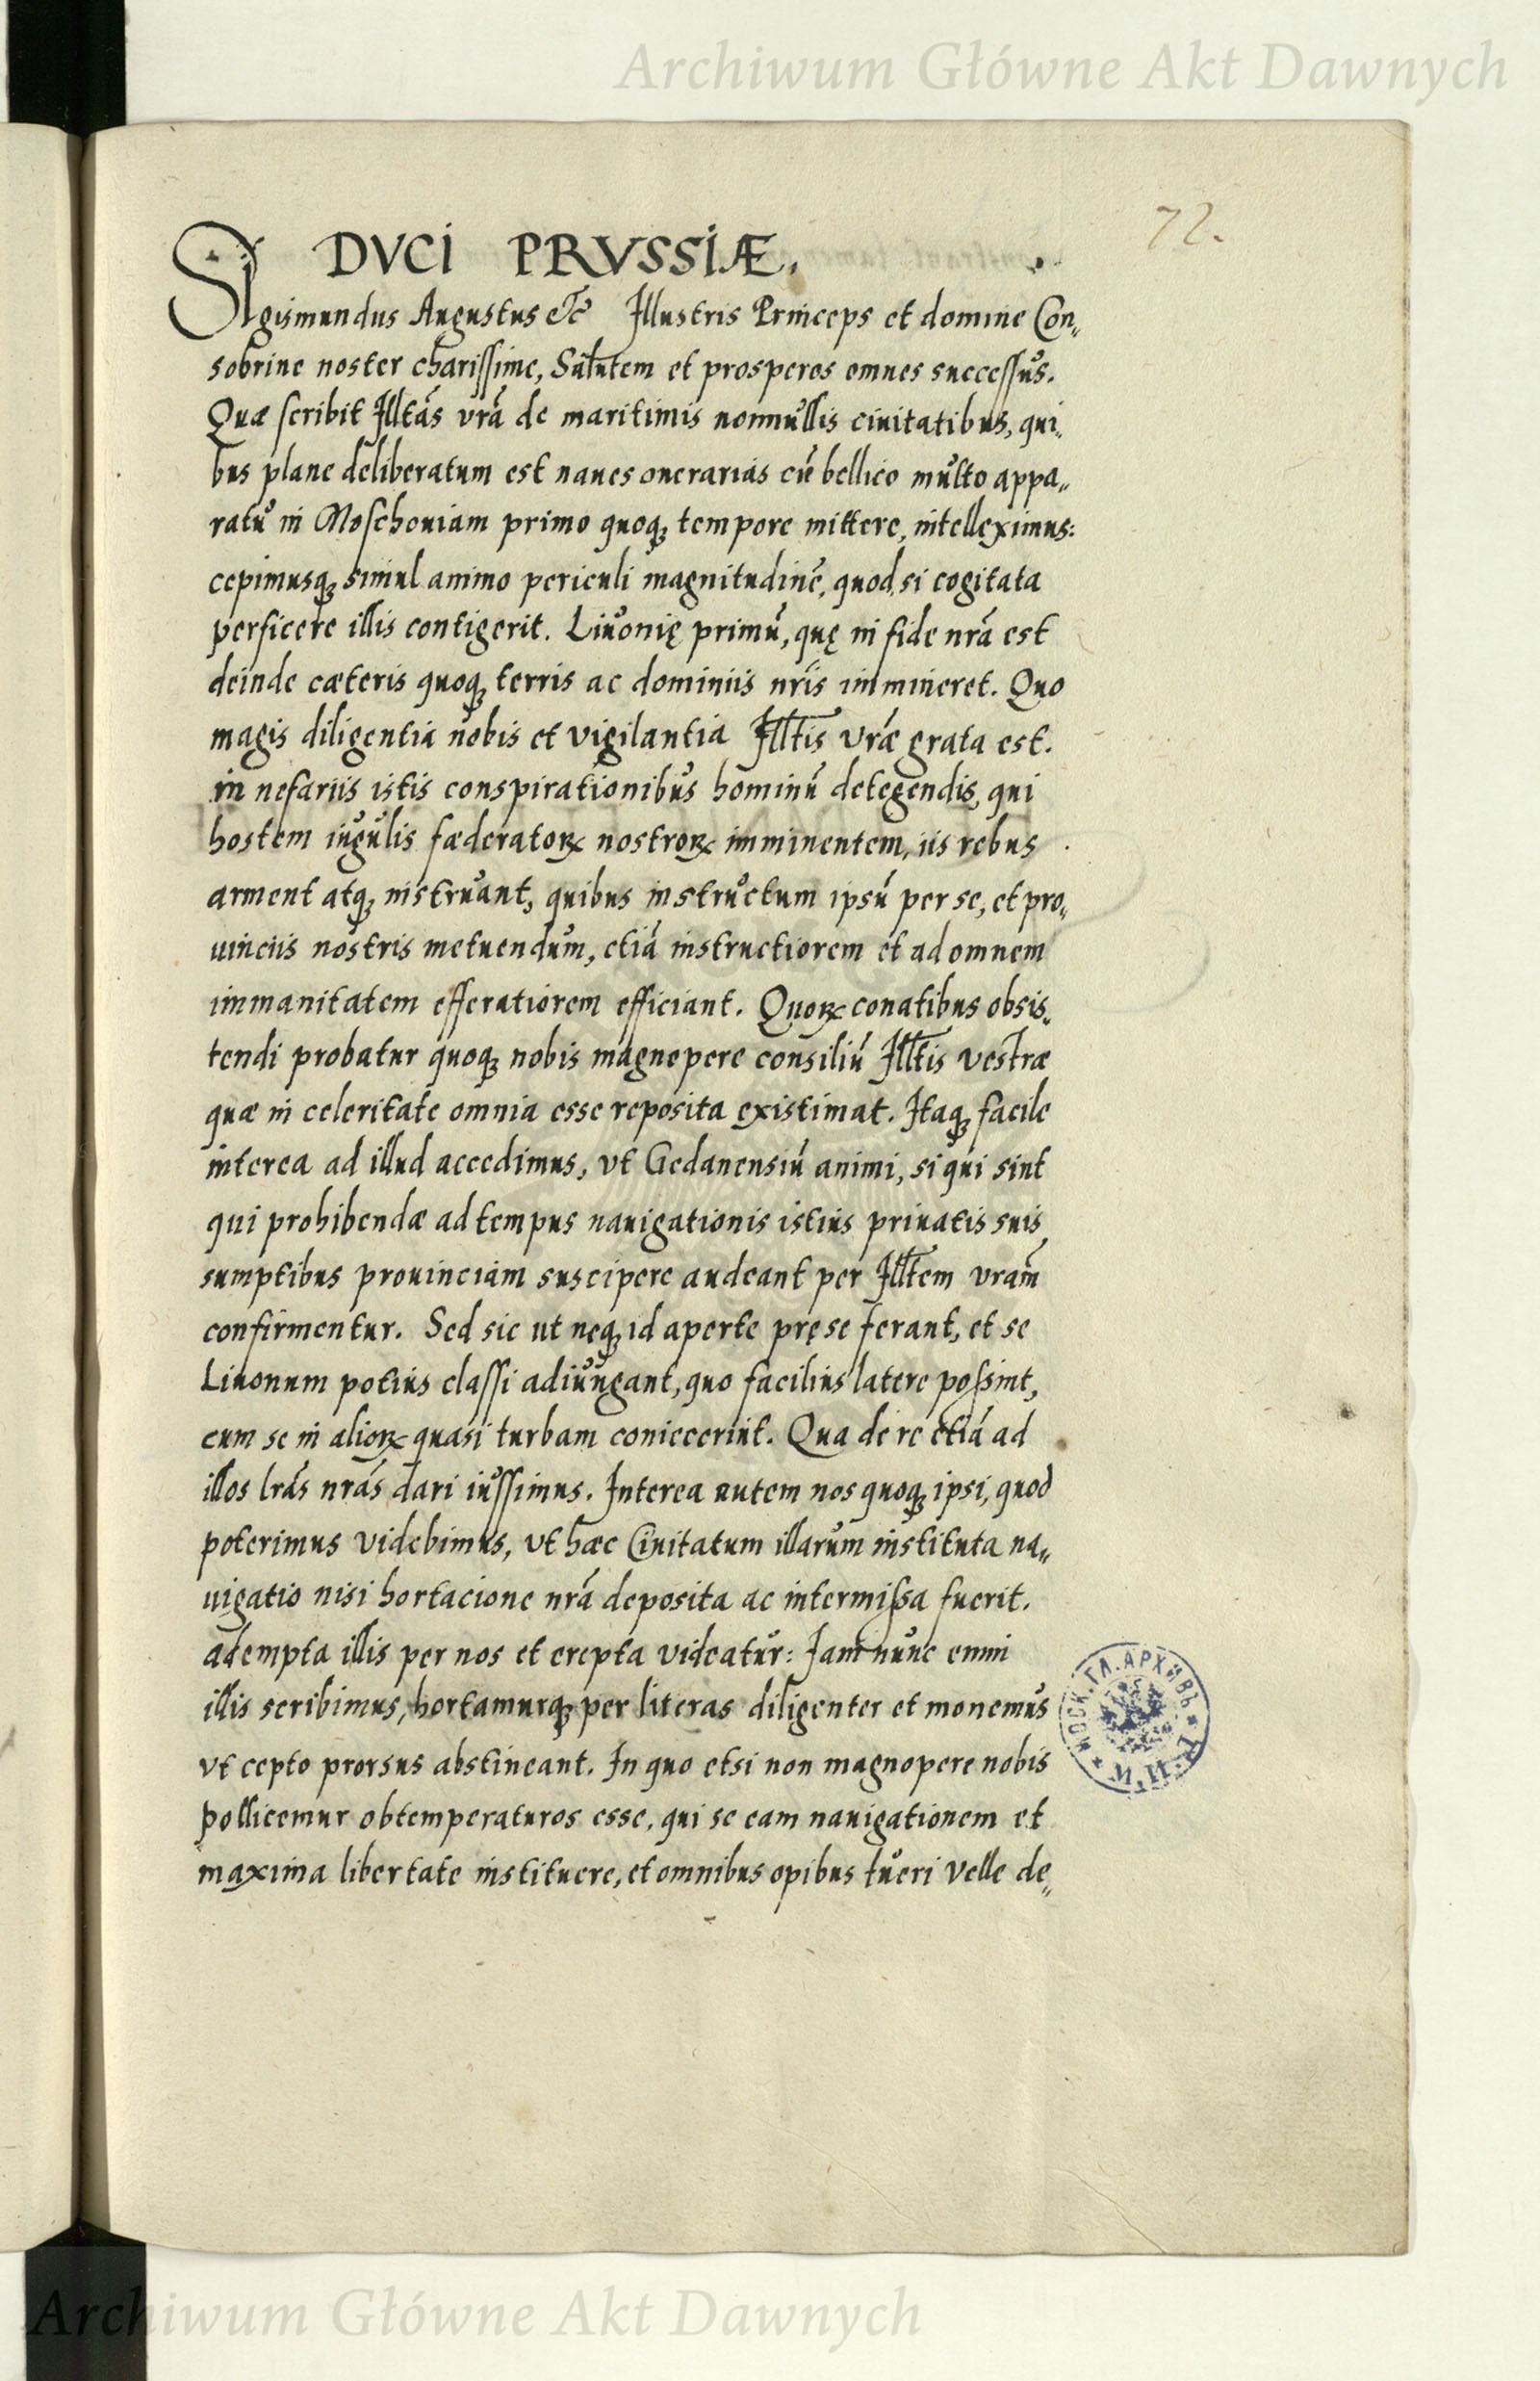 Archiwum Główne Akt Dawnych
72.
DVCI PRVSSIÆ.
Sigismundus Augustus etc Illustris Princeps et domine Con„
sobrine noster charissime, Salutem et prosperos omnes successus.
Quæ scribit Illtas vrã de maritimis nonnullis ciuitatibus, qui„
bus plane deliberatum est naues onerarias cũ bellico multo appa„
ratu in Moscheuiam primo quoq; tempore mittere, intelleximus:
cepimusq; simul animo periculi magnitudinẽ, quod, si cogitata
perficere illis contigerit. Liuonię primũ, quę in fide nrã est
deinde cæteris quoq; terris ac dominiis nris immineret. Quo
magis diligentia nobis et vigilantia Illtis vræ grata est.
in nefariis istis conspirationibus hominũ detegendis, qui
hostem iugulis fæderatoꝝ nostroꝝ imminentem, iis rebus
arment atq; instruant, quibus instructum ipsũ per se, et pro„
uinciis nostris metuendum, etiã instructiorem et ad omnem
immanitatem efferatiorem efficiant. Quoꝝ conatibus obsis„
tendi probatur quoq; nobis magnepere consiliũ Illtis vestræ
quæ in celeritate omnia esse reposita existimat. Itaq; facile
interea ad illud accedimus, vt Gedanensiũ animi, si qui sint
qui prohibendæ ad tempus nauigationis istius priuatis suis
sumptibus prouinciam suscipere audeant per Illtem vram
confirmentur. Sed sic ut neq; id aperte prę se ferant, et se
Liuonum potius classi adiungant, quo facilius latere possint,
cum se in alioꝝ quasi turbam coniecerint. Qua de re etiã ad
illos lras nras dari iussimus. Interea autem nos quoq; ipsi, quod
poterimus videbimus, vt hæc Ciuitatum illarum instituta na„
uigatio nisi hortacione nrã deposita ac intermissa fuerit.
adempta illis per nos et erepta videatur: Iam nunc enim
illis scribimus, hortamurq; per literas diligenter et monemus
vt cepto prorsus abstineant. In quo etsi non magnopere nobis
pollicemur obtemperaturos esse, qui se eam nauigationem et
maxima libertate instituere, et omnibus opibus tueri velle de„
МОСК. ГЛ. АРХИВЪ М. И. Д.
Archiwum Główne Akt Dawnych